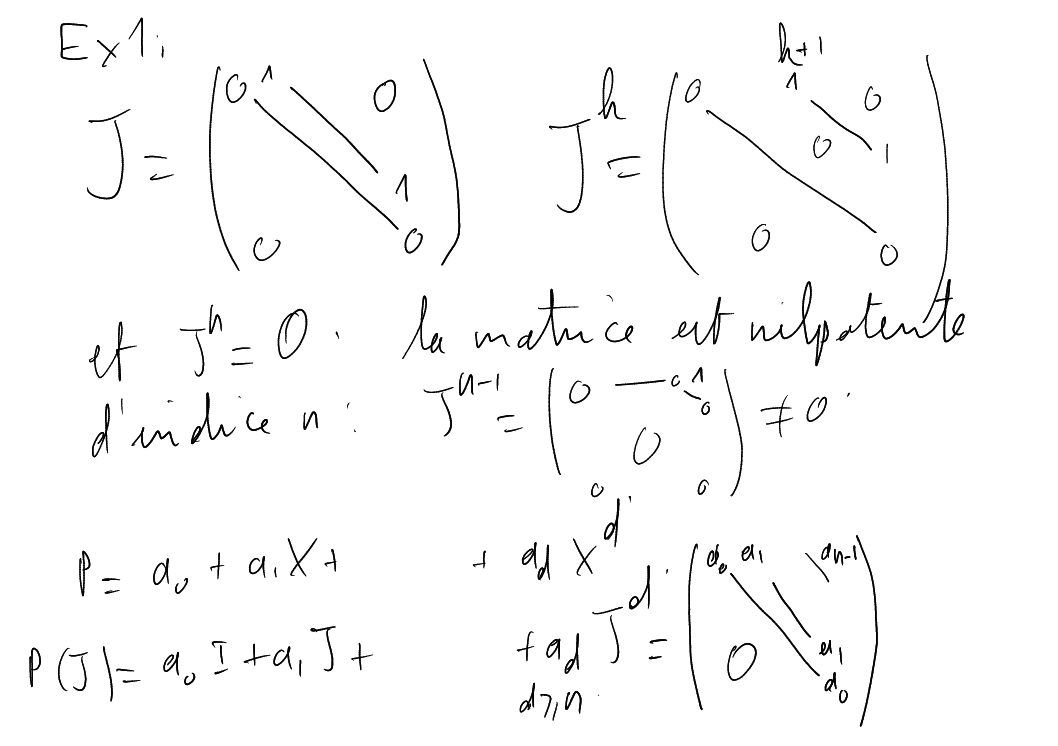 Ex1:
J = ( 0 1 0 1 0 0 ) J^k = ( 0 k+1 1 0 0 1 0 0 )
et J^n = 0. la matrice est nilpotente
d'indice n : J^n-1 = ( 0 — 0 1 0 0 0 0 ) ≠ 0.
P = a0 + a1 X + + ad X^d.
P(J) = a0 I + a1 J + + ad J^d = ( a0 a1 an-1 0 a1 a0 )
d ≥ n